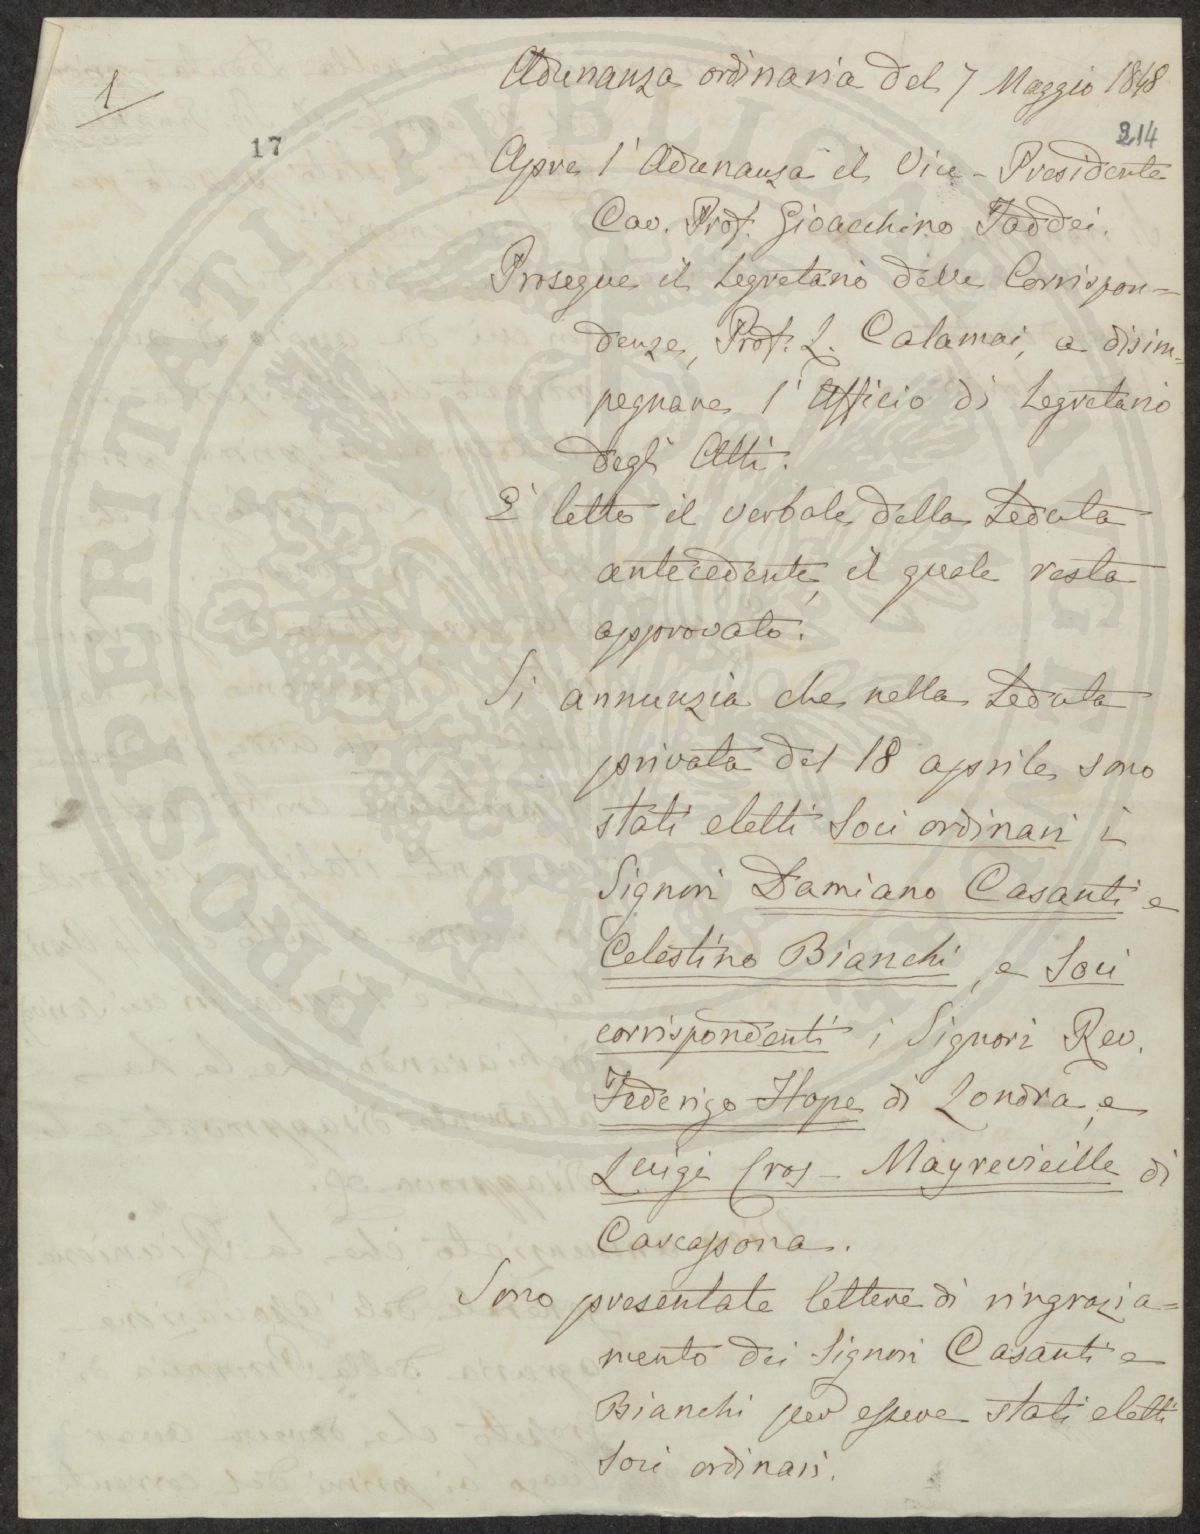 Adunanza ordinaria del 7 Maggio 1848
1
17
214
Apre l'Adunanza il Vice-Presidente
Cav. Prof. Gioacchino Taddei.
Prosegue il Segretario delle Corrispon=
denze, Prof. L. Calamai, a disim=
pegnare l'Ufficio di Segretario
degli Atti.
E' letto il verbale della Seduta
antecedente, il quale resta
approvato.
Si annunzia che nella Seduta
privata del 18 aprile sono
stati eletti Soci ordinari i
Signori Damiano Casanti e
Celestino Bianchi, e Soci
corrispondenti i Signori Rev.
Federigo Hope di Londra, e
Luigi Cros-Mayrevieille di
Carcassona.
Sono presentate lettere di ringrazia=
mento dei Signori Casanti e
Bianchi per essere stati eletti
Soci ordinari.
PROSPERITATI PUBLICAE AUGENDAE